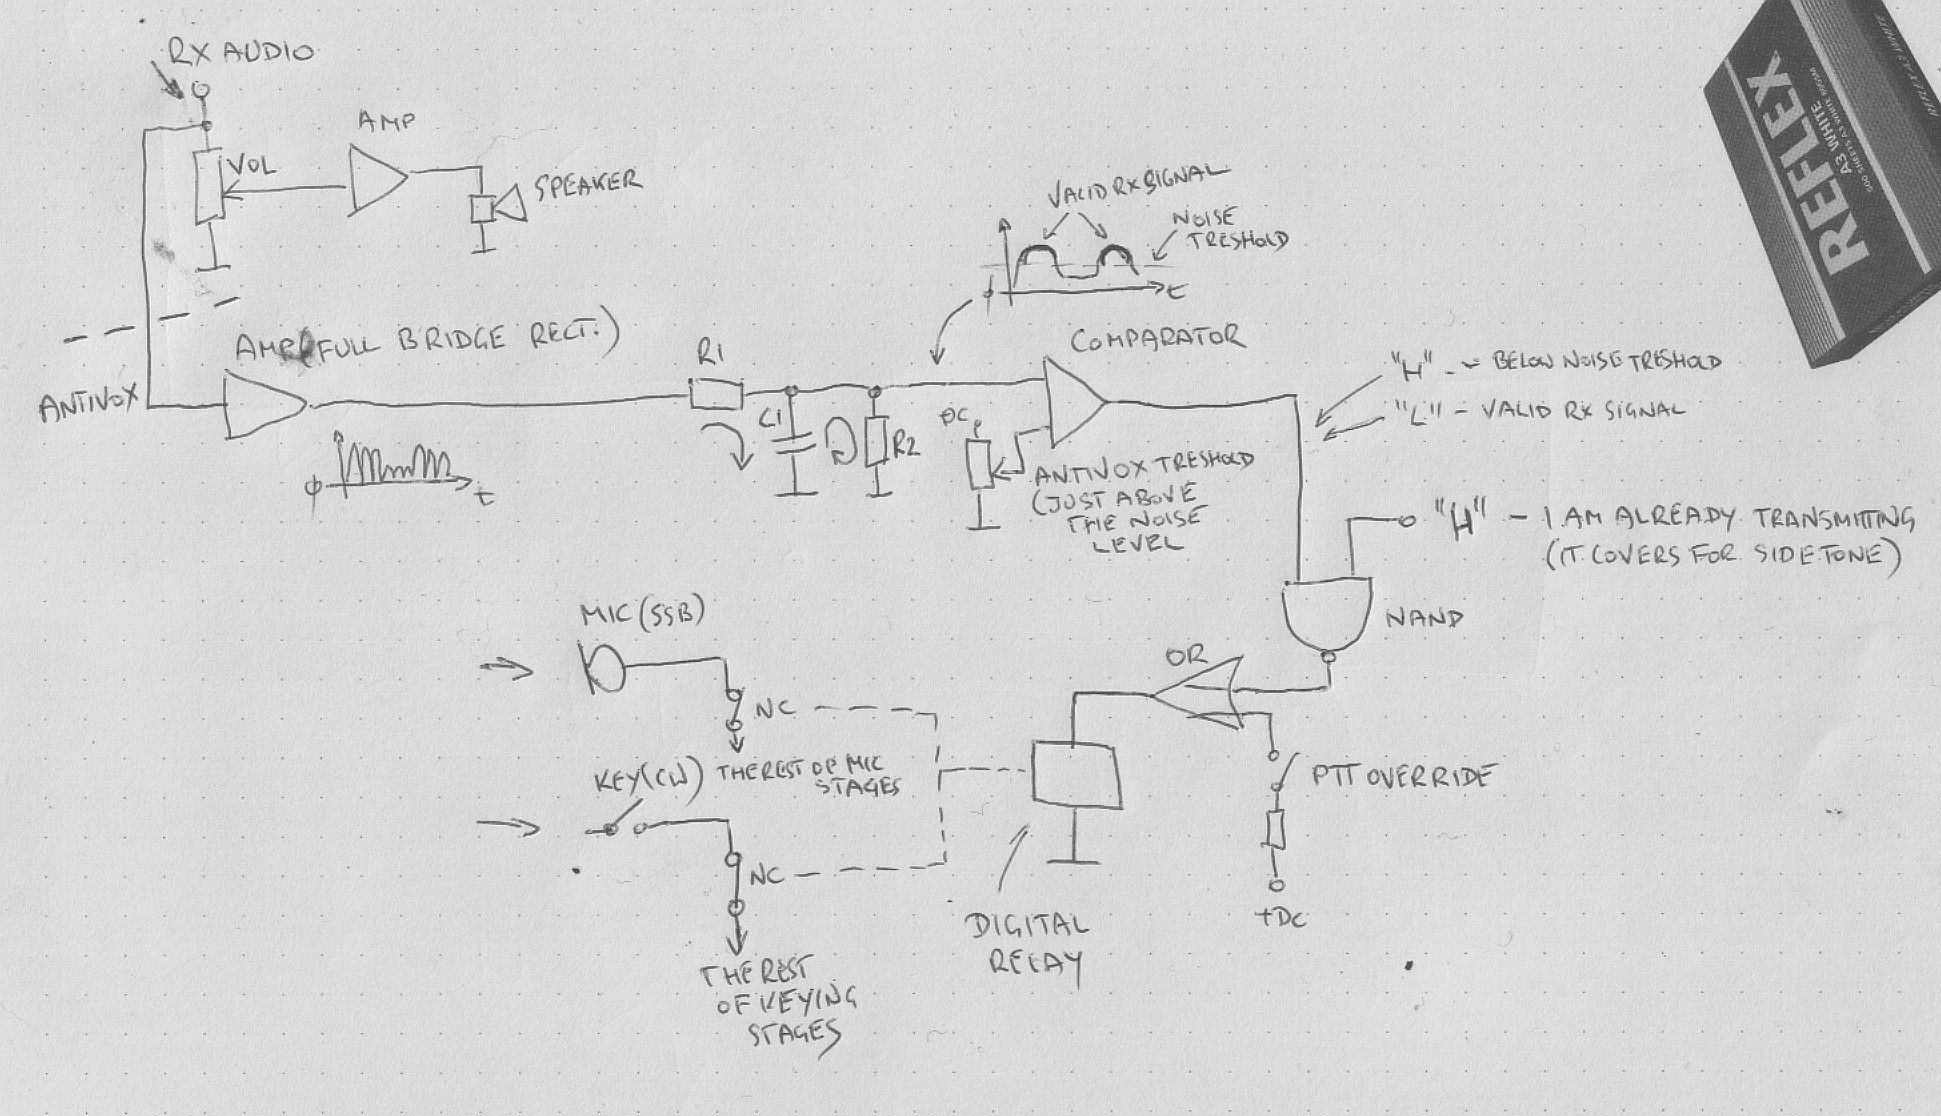 RX AUDIO
VOL
AMP
SPEAKER
ANTIVOX
AMP (FULL BRIDGE RECT.)
R1
C1
R2
φ
t
VALID RX SIGNAL
NOISE
TRESHOLD
φ
t
COMPARATOR
DC
ANTIVOX TRESHOLD
(JUST ABOVE
THE NOISE
LEVEL
"H" - BELOW NOISE TRESHOLD
"L" - VALID RX SIGNAL
"H" - I AM ALREADY TRANSMITTING
(IT COVERS FOR SIDETONE)
NAND
OR
PTT OVERRIDE
+DC
DIGITAL
RELAY
MIC (SSB)
NC
THE REST OF MIC
STAGES
KEY (CW)
NC
THE REST
OF KEYING
STAGES
REFLEX
A3 WHITE
500 SHEETS A3 WHITE 80GSM
REFLEX A3 WHITE